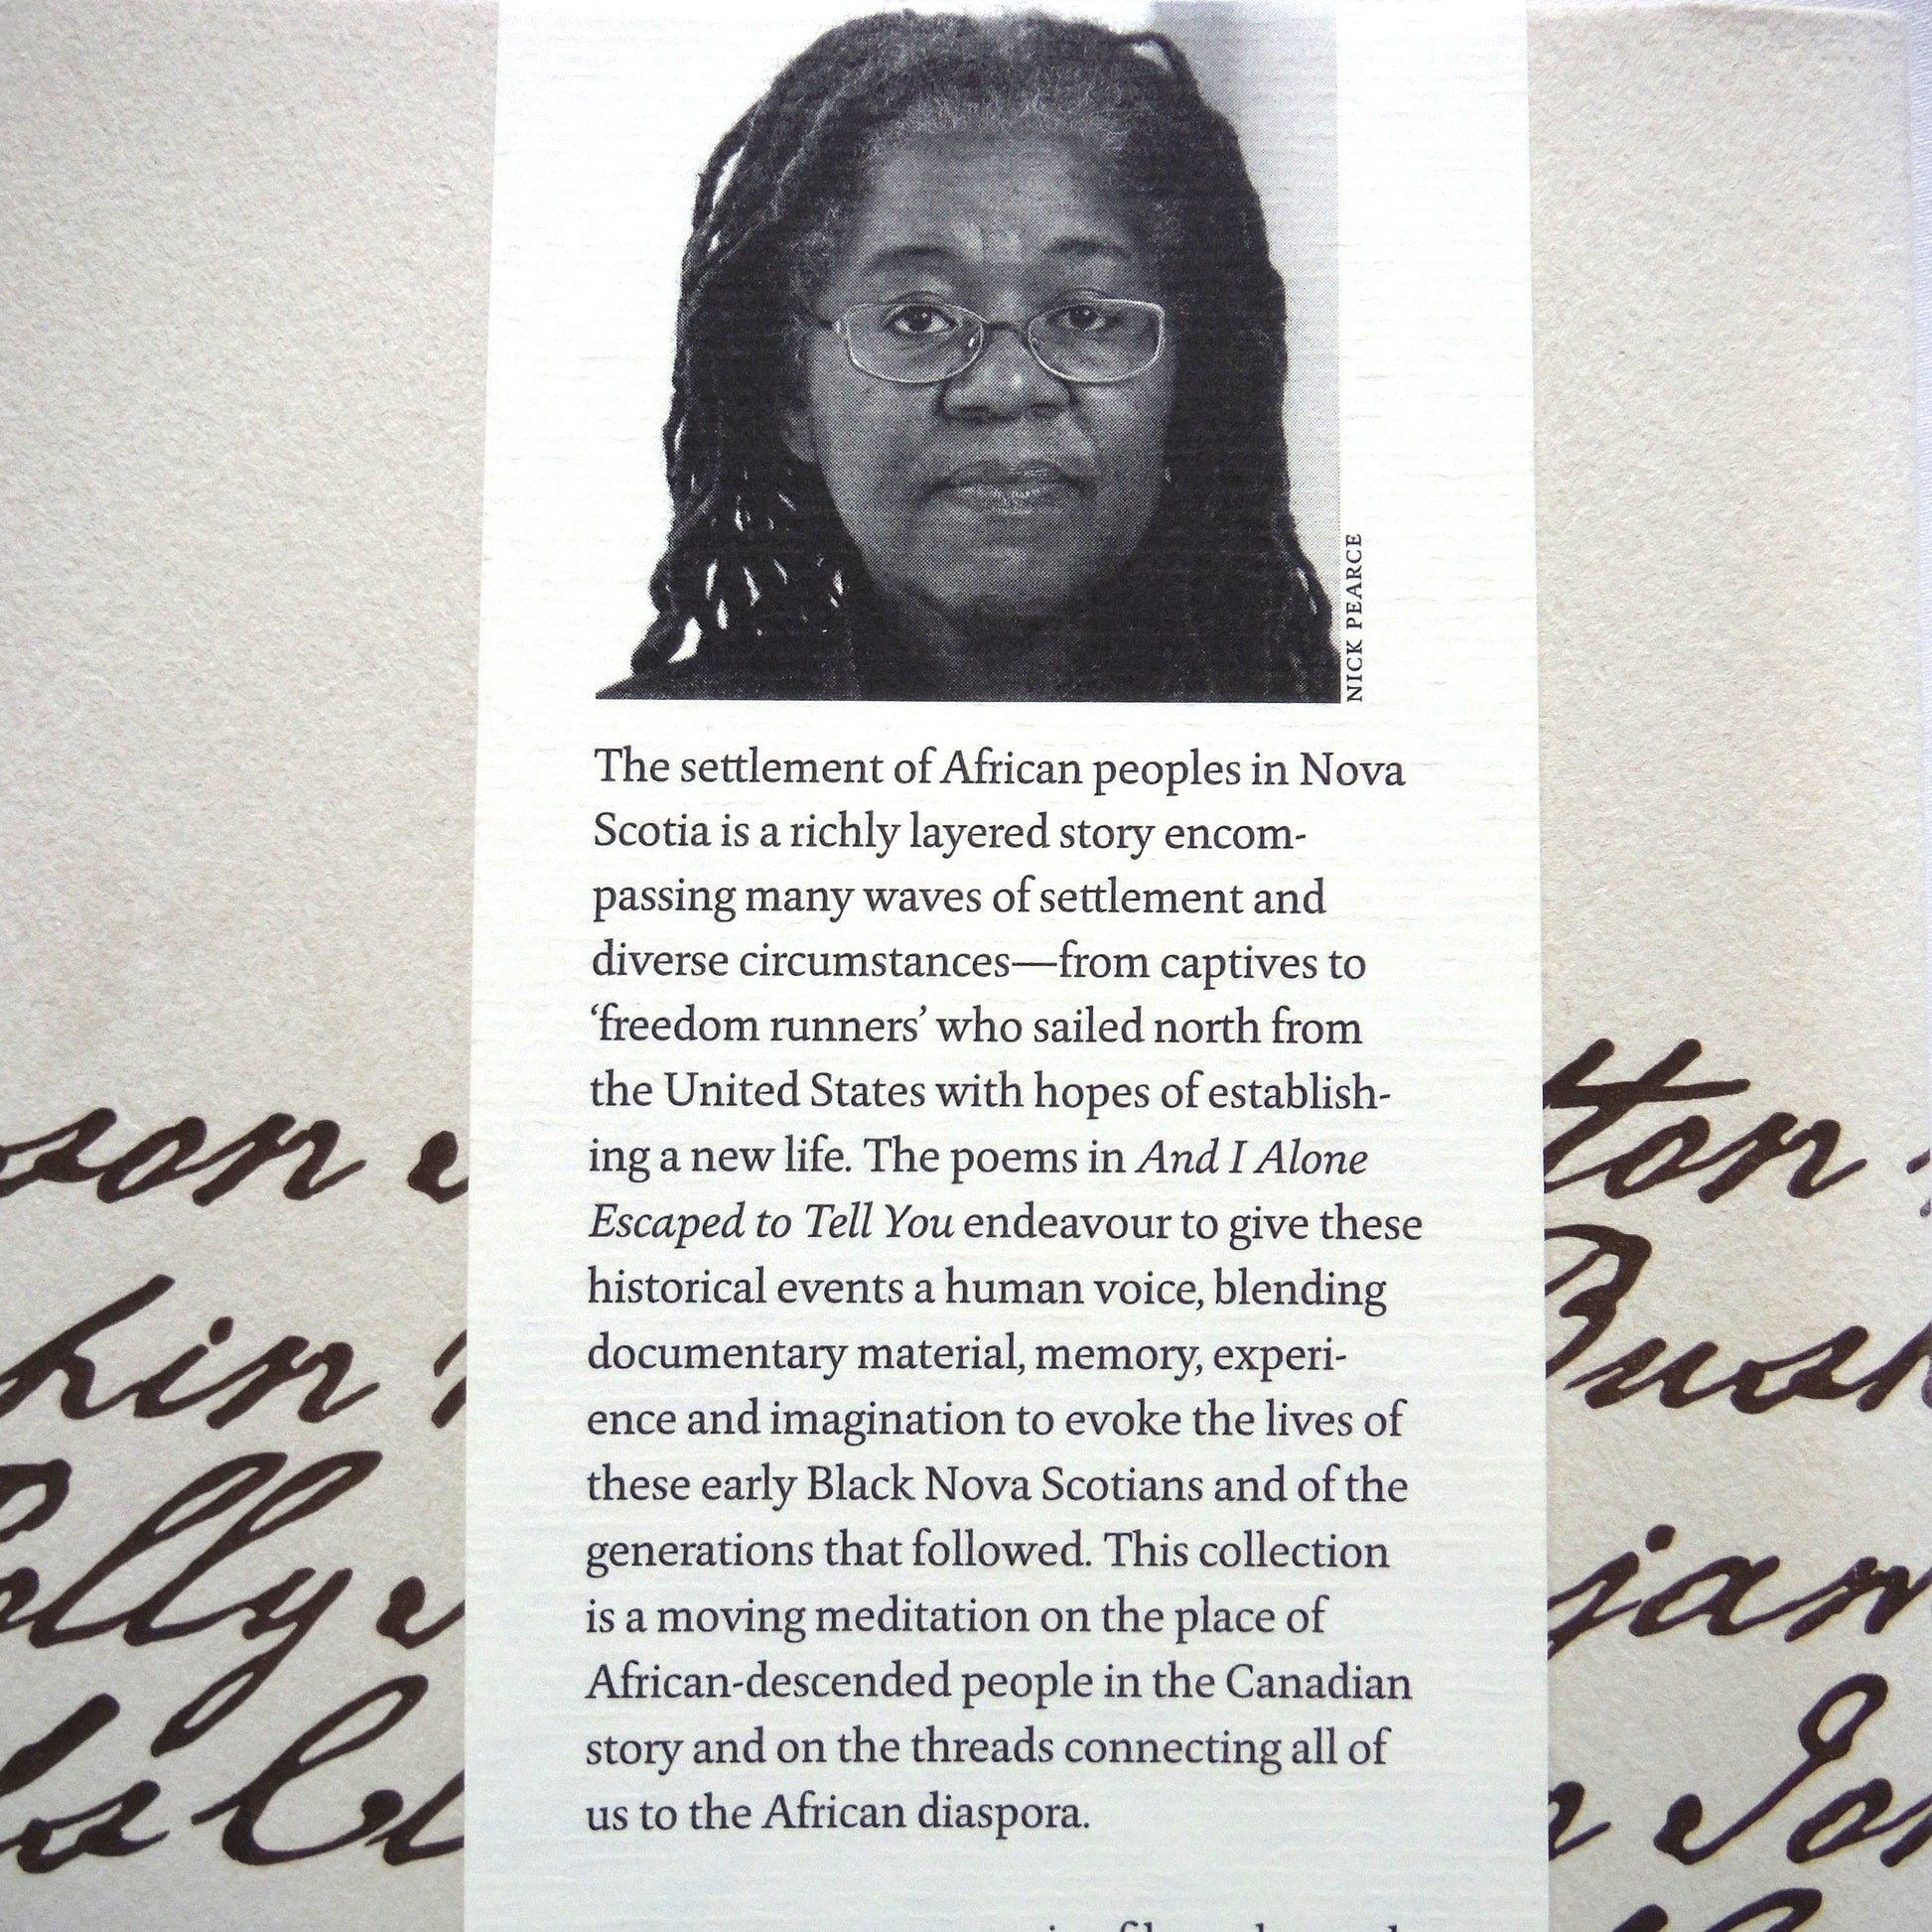 NICK PEARCE
The settlement of African peoples in Nova
Scotia is a richly layered story encom-
passing many waves of settlement and
diverse circumstances—from captives to
‘freedom runners’ who sailed north from
the United States with hopes of establish-
ing a new life. The poems in And I Alone
Escaped to Tell You endeavour to give these
historical events a human voice, blending
documentary material, memory, experi-
ence and imagination to evoke the lives of
these early Black Nova Scotians and of the
generations that followed. This collection
is a moving meditation on the place of
African-descended people in the Canadian
story and on the threads connecting all of
us to the African diaspora.